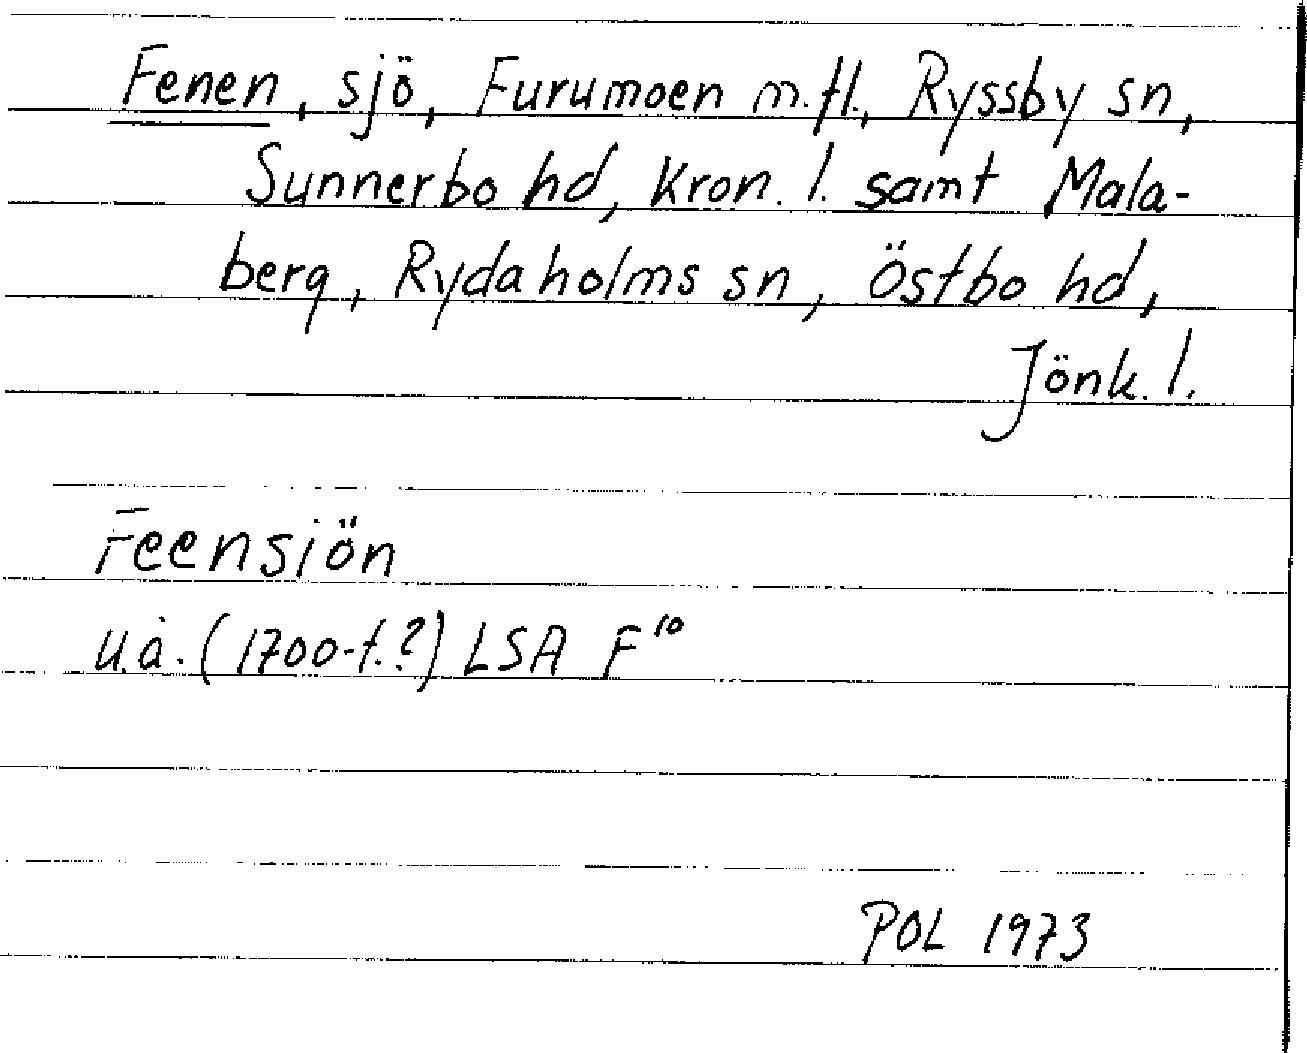 Fenen, sjö, Furumoen m.fl., Ryssby sn,
Sunnerbo hd, Kron. l. samt Mala-
berg, Rydaholms sn, Östbo hd,
Jönk. l.
Feensiön
u.å. (1700-t.?) LSA F¹⁰
POL 1973